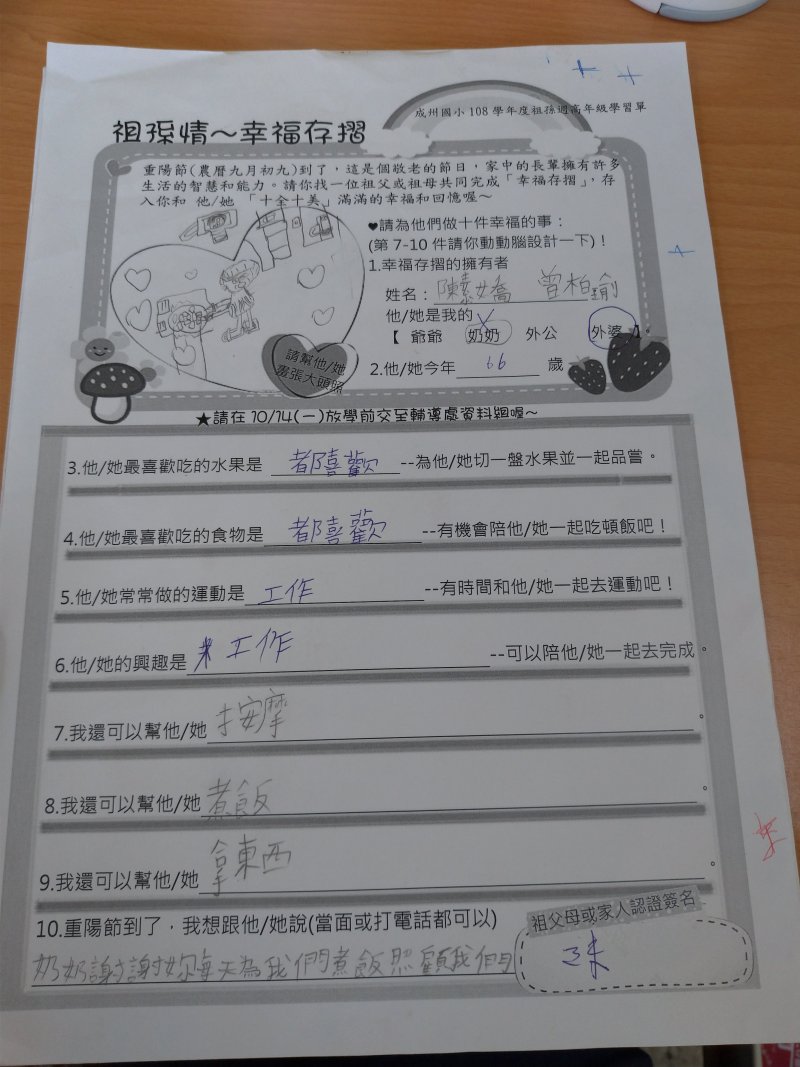 成州國小 108 學年度祖孫週高年級學習單
祖孫情～幸福存摺
重陽節(農曆九月初九)到了，這是個敬老的節日，家中的長輩擁有許多
生活的智慧和能力。請你找一位祖父或祖母共同完成「幸福存摺」，存
入你和 他/她 「十全十美」滿滿的幸福和回憶喔～
♥請為他們做十件幸福的事：
(第 7-10 件請你動動腦設計一下)！
1.幸福存摺的擁有者
姓名：陳素嬌 曾柏瑜
他/她是我的
【 爺爺 奶奶 外公 外婆 】。
請幫他/她
畫張大頭照
2.他/她今年 66 歲
★請在 10/14(一)放學前交至輔導處資料組喔～
3.他/她最喜歡吃的水果是 都喜歡 --為他/她切一盤水果並一起品嘗。
4.他/她最喜歡吃的食物是 都喜歡 --有機會陪他/她一起吃頓飯吧！
5.他/她常常做的運動是 工作 --有時間和他/她一起去運動吧！
6.他/她的興趣是 工作 --可以陪他/她一起去完成。
7.我還可以幫他/她 按摩 。
8.我還可以幫他/她 煮飯 。
9.我還可以幫他/她 拿東西 。
10.重陽節到了，我想跟他/她說(當面或打電話都可以)
奶奶謝謝妳每天為我們煮飯照顧我們
祖父母或家人認證簽名